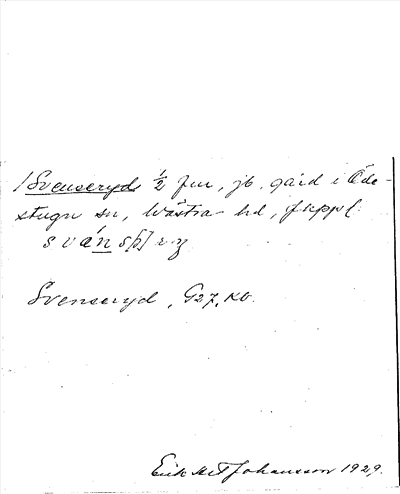 /Svenseryd, 1/2 fm, jb. gård i Öde-
stugu sn, Västra hd, Jkppl:
Svenseryd, G27, Kb.
Erik Johansson 1929.